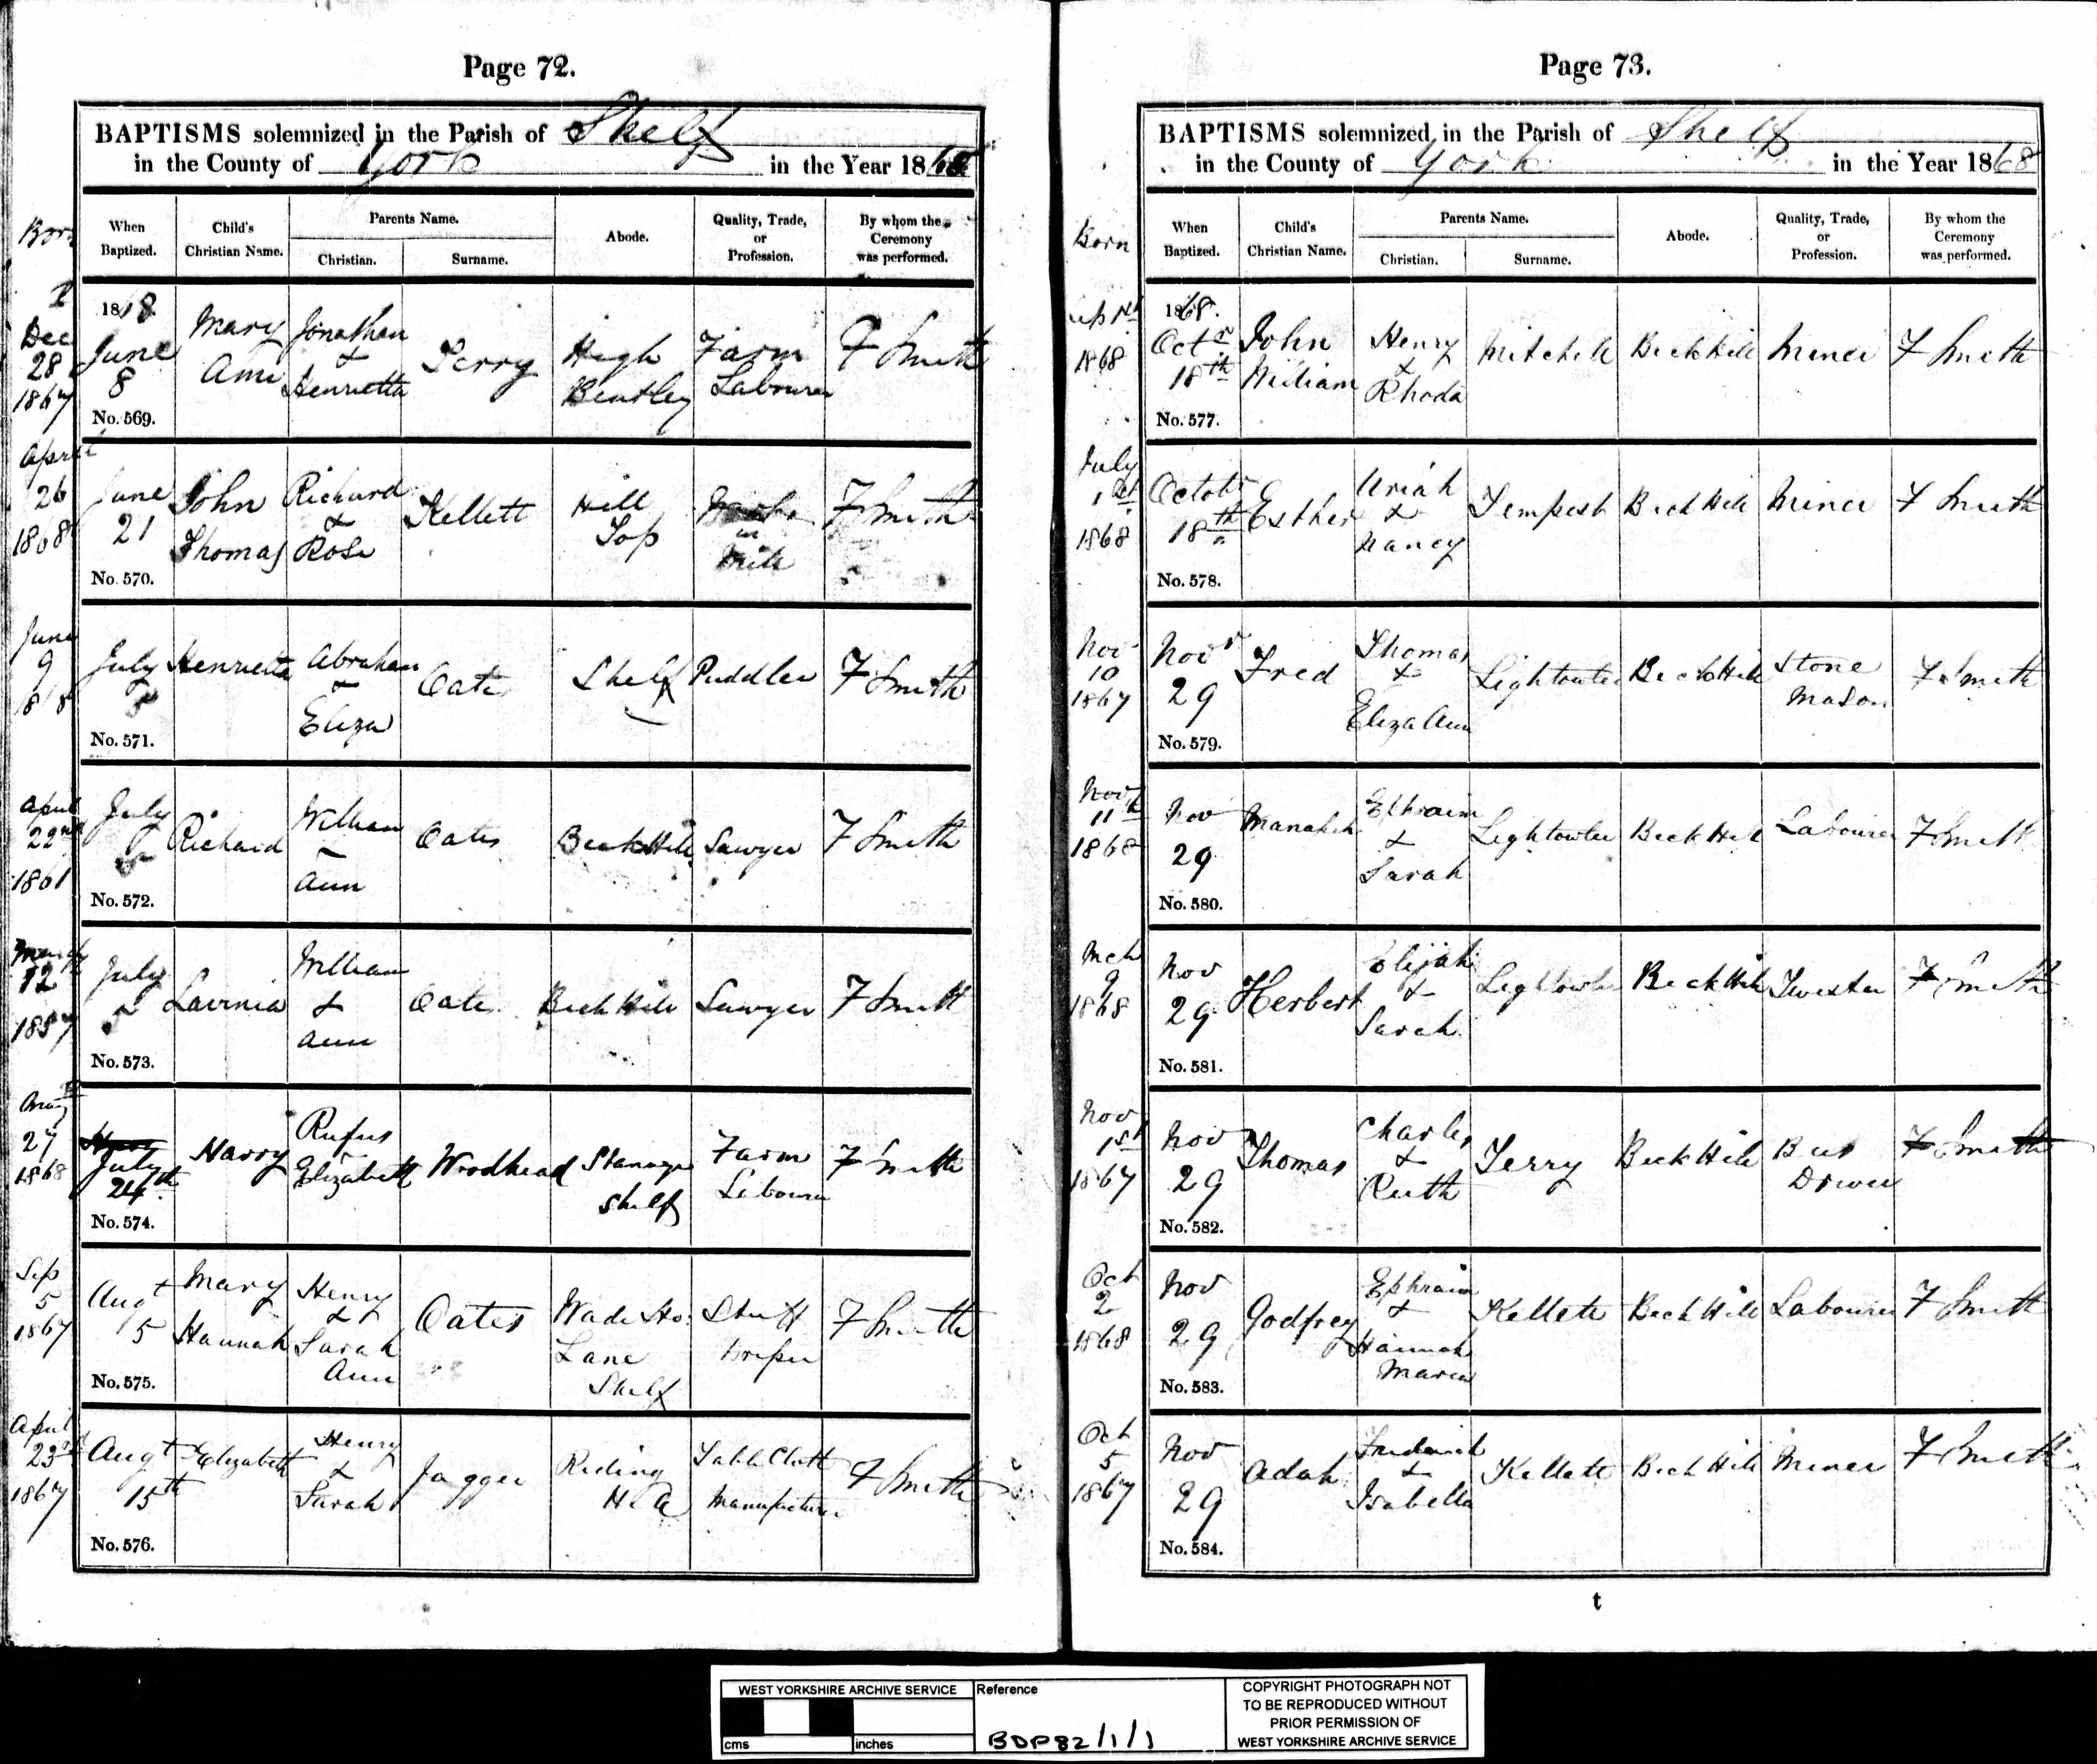 Page 72.
BAPTISMS solemnized in the Parish of Shelf
in the County of York in the Year 1868
Born
When Baptized.
Child's Christian Name.
Parents Name.
Christian.
Surname.
Abode.
Quality, Trade, or Profession.
By whom the Ceremony was performed.
Dec 28 1867
1868. June 8
Mary Ann
Jonathan & Henrietta
Terry
High Bentley
Farm Labourer
F Smith
No. 569.
April 26 1868
June 21
John Thomas
Richard & Rose
Kellett
Hill Top
in Mill
F Smith
No. 570.
June 9
July 5
Henrietta
Abraham & Eliza
Oates
Shelf
Puddler
F Smith
No. 571.
April 22nd 1861
July 5
Richard
William Ann
Oates
Beck Hill
Sawyer
F Smith
No. 572.
12 1857
July 5
Lavinia
William & Ann
Oates
Beck Hill
Sawyer
F Smith
No. 573.
May 27 1868
July 24th
Harry
Rufus Elizabeth
Woodhead
Stanage Shelf
Farm Labourer
F Smith
No. 574.
Sep 5 1867
Augt 5
Mary Hannah
Henry & Sarah Ann
Oates
Wade Ho. Lane Shelf
Stuff
F Smith
No. 575.
April 23rd 1867
Augt 15th
Elizabeth
Henry & Sarah
Jagger
Riding Hill
Table Cloth Manufacturer
F Smith
No. 576.
Page 73.
BAPTISMS solemnized in the Parish of Shelf
in the County of York in the Year 1868
Born
When Baptized.
Child's Christian Name.
Parents Name.
Christian.
Surname.
Abode.
Quality, Trade, or Profession.
By whom the Ceremony was performed.
1868
1868. Octr 18th
John William
Henry & Rhoda
Mitchell
Beck Hill
Miner
F Smith
No. 577.
July 1st 1868
Octobr 18th
Esther
Uriah & Nancy
Tempest
Beck Hill
Miner
F Smith
No. 578.
Nov 10 1867
Novr 29
Fred
Thomas & Eliza Ann
Lightowler
Beck Hill
Stone Mason
F Smith
No. 579.
Nov 11th 1868
Nov 29
Manasseh
Ephraim & Sarah
Lightowler
Beck Hill
Labourer
F Smith
No. 580.
Mch 9 1868
Nov 29
Herbert
Elijah & Sarah
Lightowler
Beck Hill
Twister
F Smith
No. 581.
Nov 1st 1867
Nov 29
Thomas
Charles & Ruth
Terry
Beck Hill
Bus Driver
F Smith
No. 582.
Oct 2 1868
Nov 29
Godfrey
Ephraim & Hannah Maria
Kellett
Beck Hill
Labourer
F Smith
No. 583.
Oct 5 1867
Nov 29
Adah
Frederick & Isabella
Kellett
Beck Hill
Miner
F Smith
No. 584.
t
WEST YORKSHIRE ARCHIVE SERVICE
cms
inches
Reference
BDP82/1/1
COPYRIGHT PHOTOGRAPH NOT
TO BE REPRODUCED WITHOUT
PRIOR PERMISSION OF
WEST YORKSHIRE ARCHIVE SERVICE